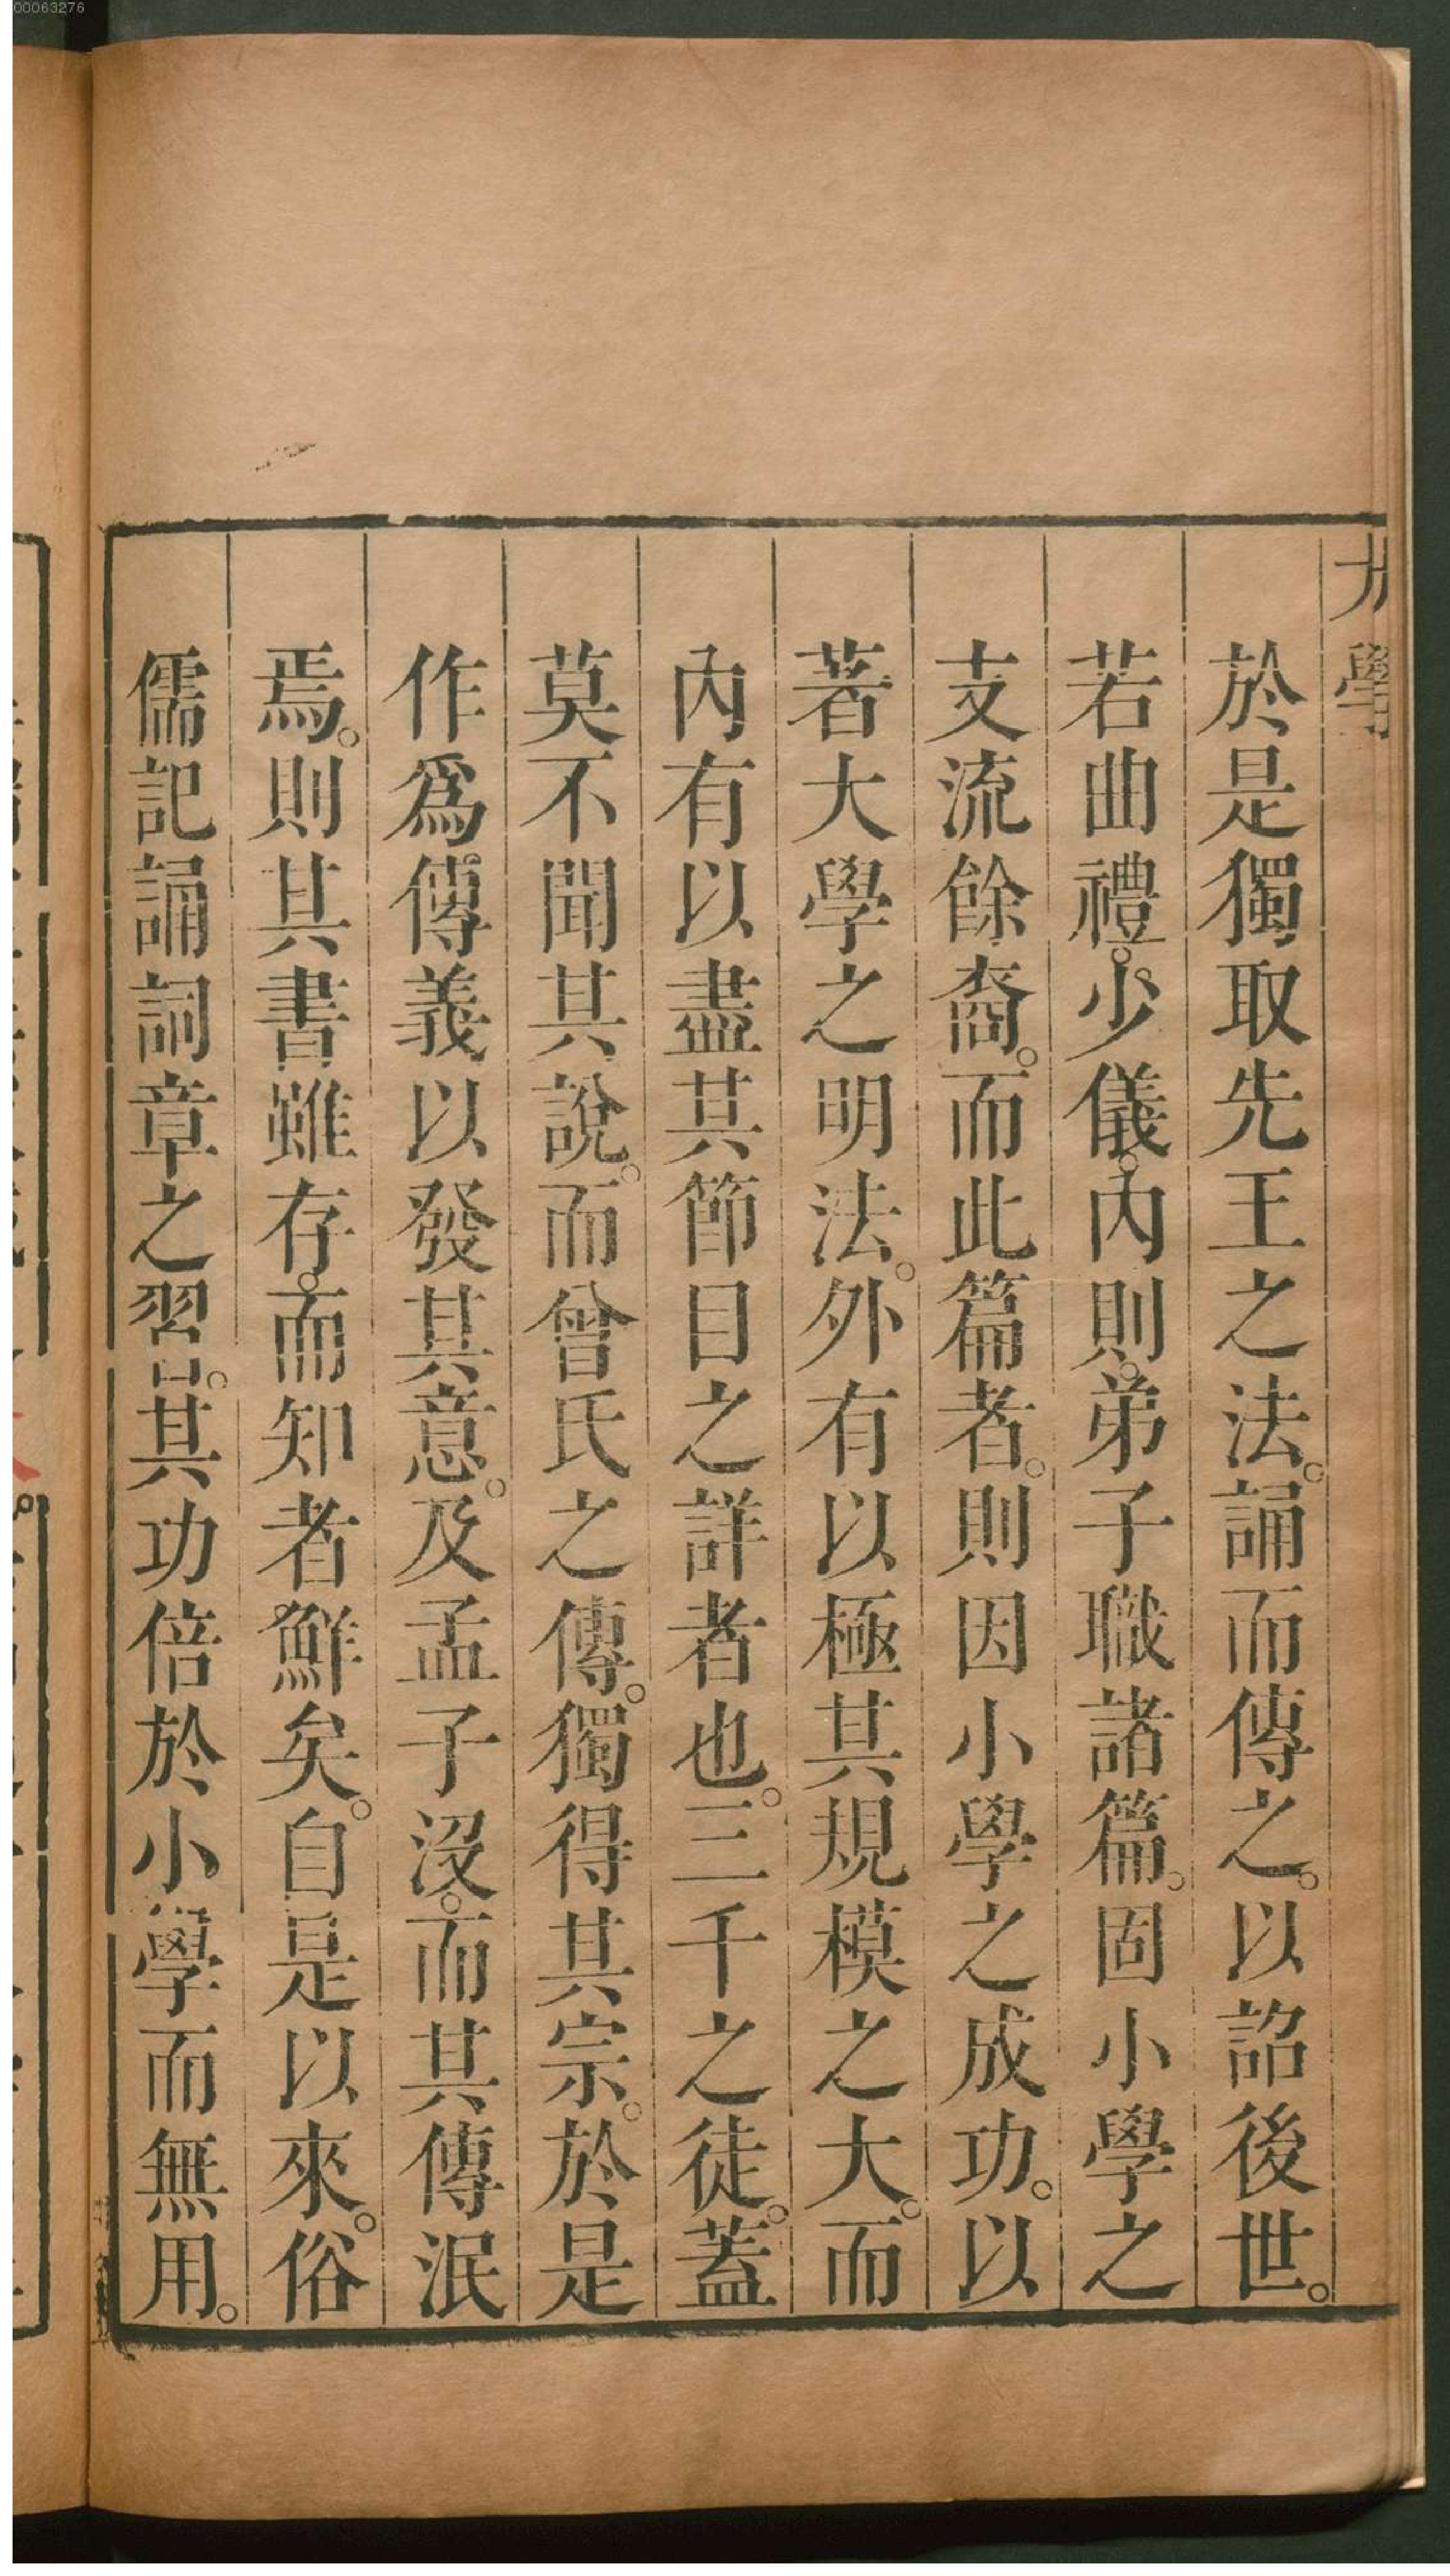 00063276
大學
於是獨取先王之法。誦而傳之。以詔後世。
若曲禮。少儀。內則。弟子職諸篇。固小學之
支流餘裔。而此篇者。則因小學之成功。以
著大學之明法。外有以極其規模之大。而
內有以盡其節目之詳者也。三千之徒。蓋
莫不聞其說。而曾氏之傳。獨得其宗。於是
作爲傳義以發其意。及孟子沒。而其傳泯
焉。則其書雖存。而知者鮮矣。自是以來。俗
儒記誦詞章之習。其功倍於小學而無用。